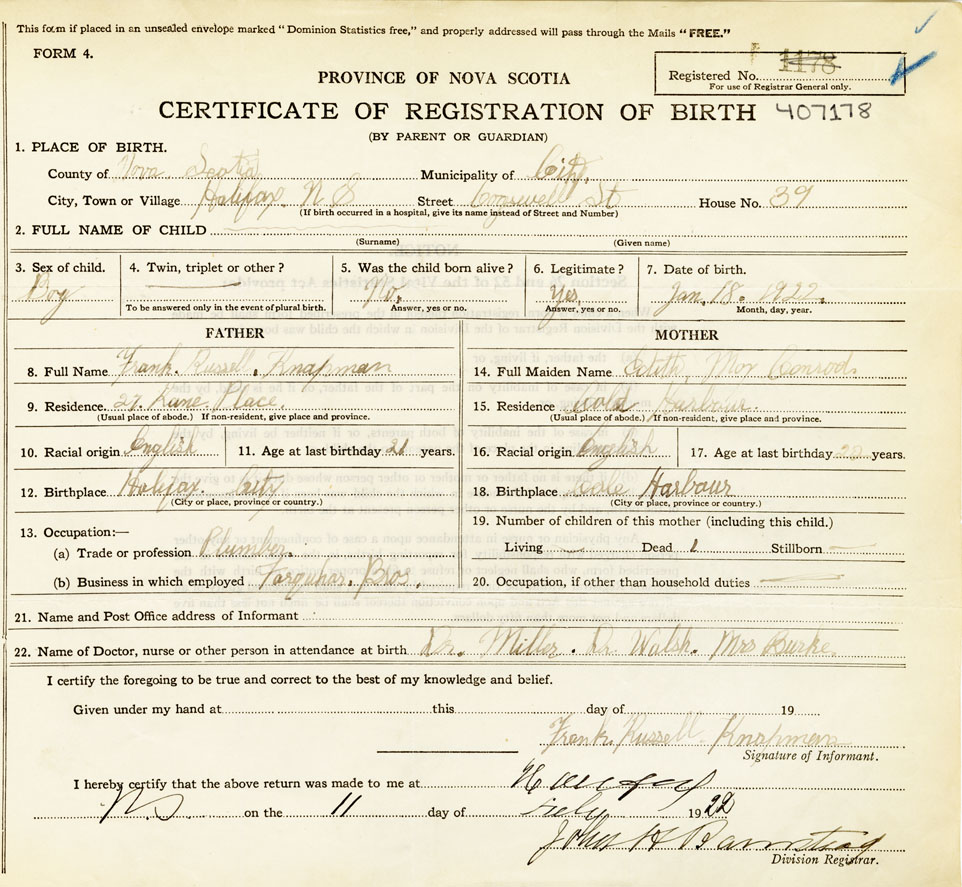 This form if placed in an unsealed envelope marked "Dominion Statistics free," and properly addressed will pass through the Mails "FREE."
FORM 4.
PROVINCE OF NOVA SCOTIA
Registered No. 1178
For use of Registrar General only.
CERTIFICATE OF REGISTRATION OF BIRTH 407178
(BY PARENT OR GUARDIAN)
1. PLACE OF BIRTH.
County of Nova Scotia Municipality of City
City, Town or Village Halifax. N S Street Cogswell St House No. 39
(If birth occurred in a hospital, give its name instead of Street and Number)
2. FULL NAME OF CHILD
(Surname) (Given name)
3. Sex of child. 4. Twin, triplet or other? 5. Was the child born alive? 6. Legitimate? 7. Date of birth.
Boy No. Yes, Jan. 18. 1922.
To be answered only in the event of plural birth. Answer, yes or no. Answer, yes or no. Month, day, year.
FATHER MOTHER
8. Full Name Frank. Russell. Knapman 14. Full Maiden Name Edith, May Conrod.
9. Residence 27. Kane Place. 15. Residence Cold Harbour.
(Usual place of abode.) If non-resident, give place and province. (Usual place of abode.) If non-resident, give place and province.
10. Racial origin English 11. Age at last birthday 21 years. 16. Racial origin English 17. Age at last birthday years.
12. Birthplace Halifax. City 18. Birthplace Cole Harbour
(City or place, province or country.) (City or place, province or country.)
13. Occupation:— 19. Number of children of this mother (including this child.)
(a) Trade or profession Plumber. Living — Dead 1 Stillborn —
(b) Business in which employed Farquhar. Bros. 20. Occupation, if other than household duties —
21. Name and Post Office address of Informant
22. Name of Doctor, nurse or other person in attendance at birth Dr. Miller. Dr Walsh. Mrs Burke.
I certify the foregoing to be true and correct to the best of my knowledge and belief.
Given under my hand at this day of 19
Frank. Russell. Knapman
Signature of Informant.
I hereby certify that the above return was made to me at Halifax
N.S on the 11 day of July 1922
John H Barnstead
Division Registrar.